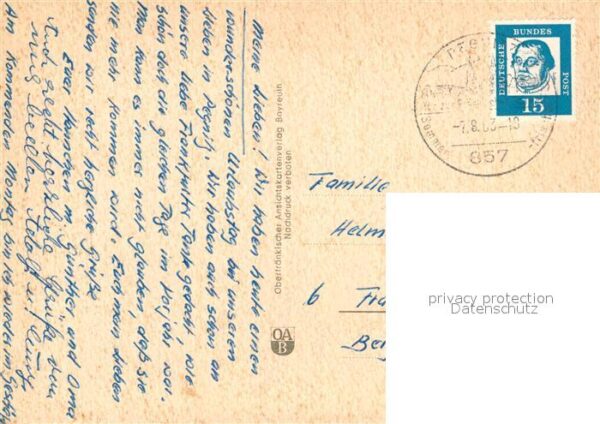 Meine Lieben! Wir haben heute einen
wunderschönen Urlaubstag bei unseren
lieben in Pegnitz. Wir haben auch schon an
unsere liebe Frankfurter Tante gedacht, wie
schön doch die gleichen Tage im vorjahr war.
Man kann es immer nicht glauben, daß sie
nie mehr kommen wird. Euch meine Lieben
senden wir recht herzliche Grüße
Eure Hannchen m. Günther und Oma
Auch sagt herzliche Grüße von
Am kommenden Montag bin ich wieder im Geschä
Oberfränkischer Ansichtskartenverlag Bayreuth
Nachdruck verboten
OA
B
DEUTSCHE BUNDES POST
15
-7.8.63-13
857
Familie
Helm
6 Fra
Ber
privacy protection
Datenschutz